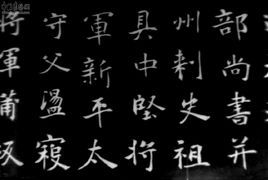 部尚書并
州刺史祖
具中堅将
軍新平太
守父盪寇
將軍蒲坂